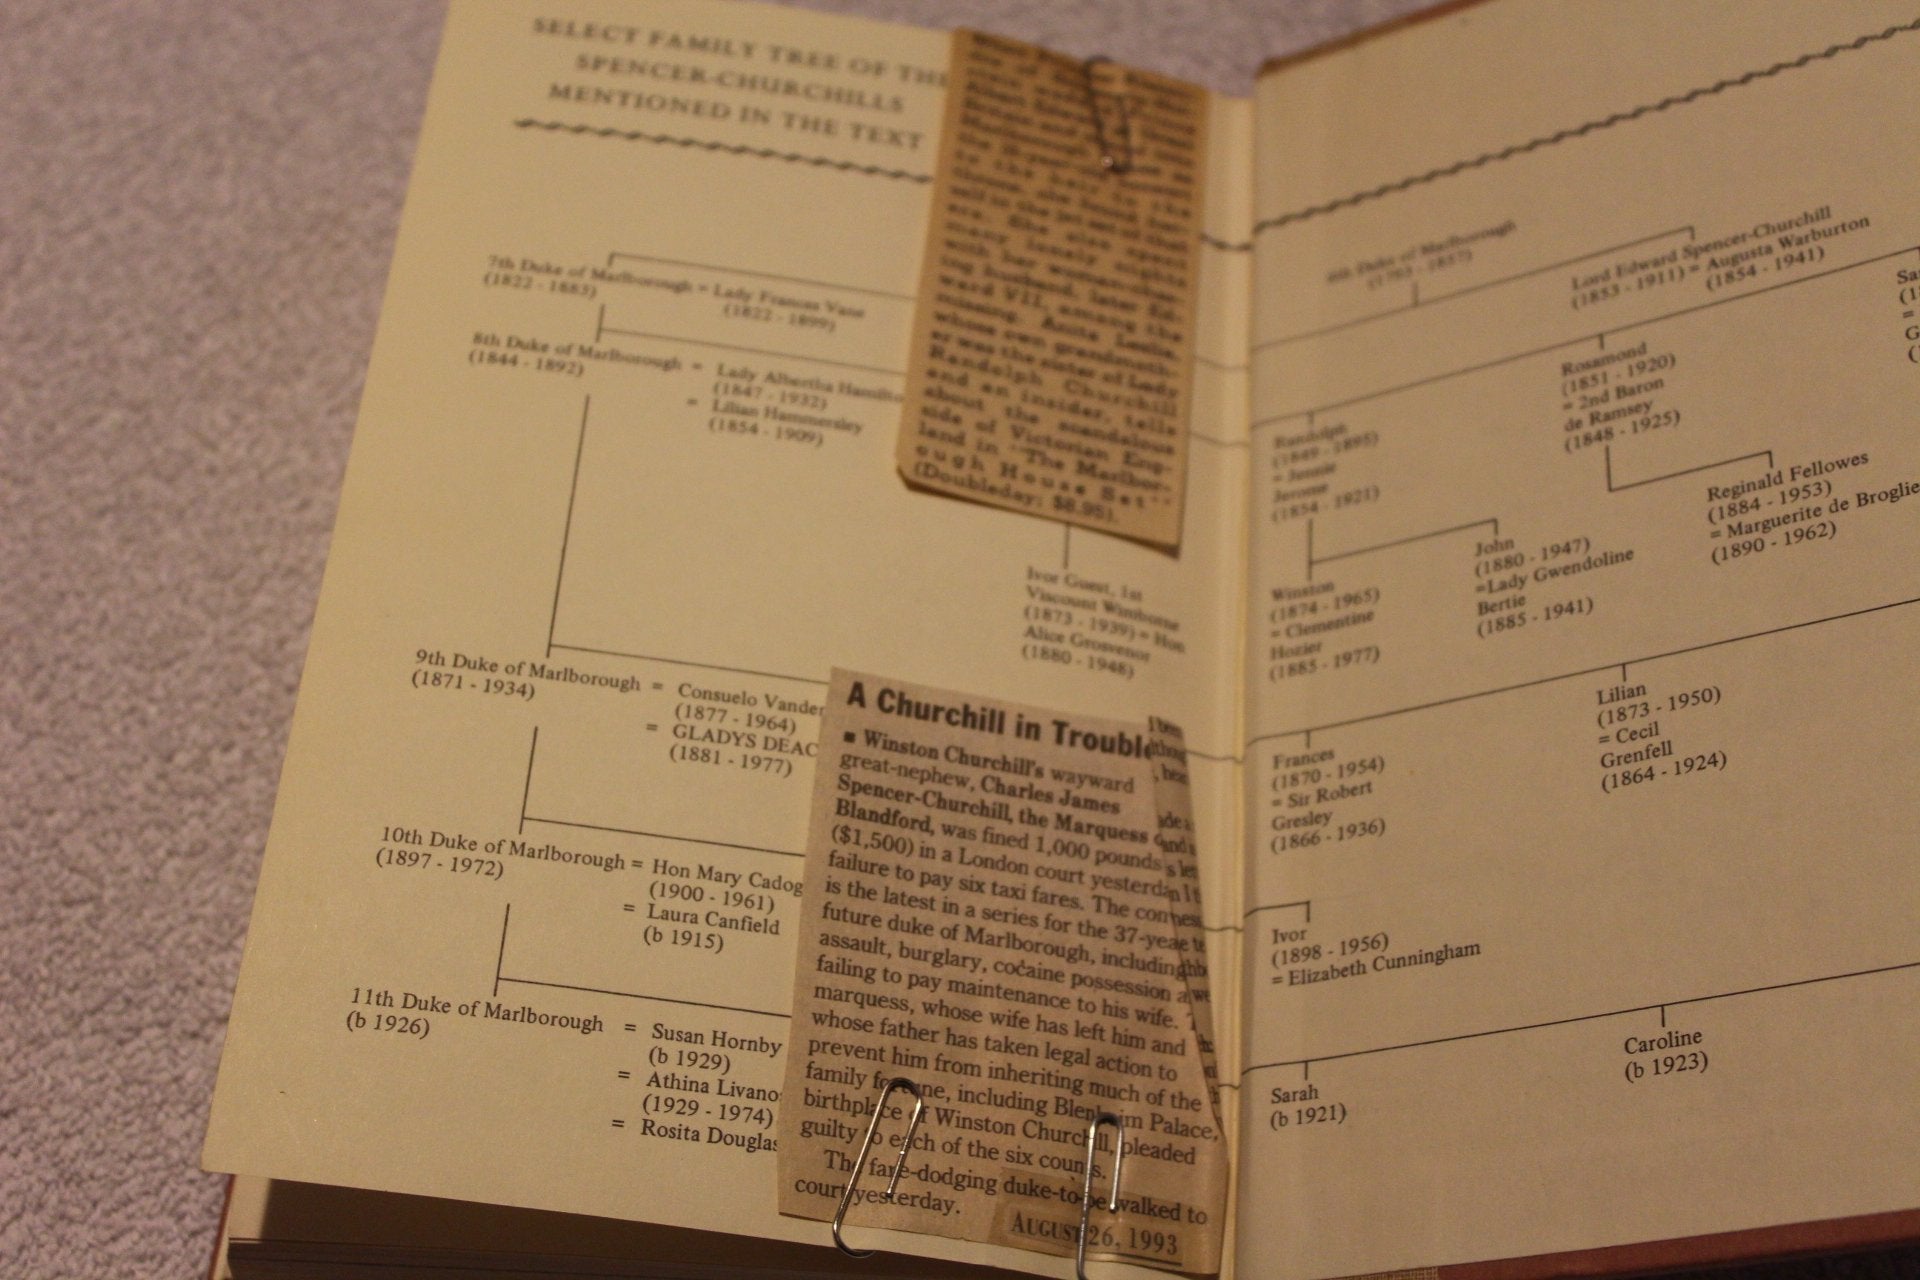 SELECT FAMILY TREE OF THE
SPENCER-CHURCHILLS
MENTIONED IN THE TEXT
7th Duke of Marlborough = Lady Frances Vane
(1822 - 1883)
(1822 - 1899)
8th Duke of Marlborough = Lady Albertha Hamilto
(1844 - 1892)
(1847 - 1932)
= Lilian Hammersley
(1854 - 1909)
Ivor Guest, 1st
Viscount Wimborne
(1873 - 1939) = Hon
Alice Grosvenor
(1880 - 1948)
9th Duke of Marlborough = Consuelo Vander
(1871 - 1934)
(1877 - 1964)
= GLADYS DEAC
(1881 - 1977)
10th Duke of Marlborough = Hon Mary Cadog
(1897 - 1972)
(1900 - 1961)
= Laura Canfield
(b 1915)
11th Duke of Marlborough = Susan Hornby
(b 1926)
(b 1929)
= Athina Livano
(1929 - 1974)
= Rosita Douglas
many lonely nights
with her woman-chas-
ing husband, later Ed-
ward VII, among the
missing. Anita Leslie,
whose own grandmoth-
er was the sister of Lady
Randolph Churchill
and an insider, tells
about the scandalous
side of Victorian Eng-
land in "The Marlbor-
ough House Set"
(Doubleday; $8.95).
A Churchill in Trouble
■ Winston Churchill's wayward
great-nephew, Charles James
Spencer-Churchill, the Marquess
Blandford, was fined 1,000 pounds
($1,500) in a London court yesterda
failure to pay six taxi fares. The con
is the latest in a series for the 37-yea
future duke of Marlborough, including
assault, burglary, cocaine possession a
failing to pay maintenance to his wife.
marquess, whose wife has left him and
whose father has taken legal action to
prevent him from inheriting much of the
family fortune, including Blenheim Palace,
birthplace of Winston Churchill, pleaded
guilty to each of the six counts.
The fare-dodging duke-to-be walked to
court yesterday.
AUGUST 26, 1993
6th Duke of Marlborough
(1793 - 1857)
Lord Edward Spencer-Churchill
(1853 - 1911) = Augusta Warburton
(1854 - 1941)
Randolph
(1849 - 1895)
= Jennie
Jerome
(1854 - 1921)
Rosamond
(1851 - 1920)
= 2nd Baron
de Ramsey
(1848 - 1925)
Winston
(1874 - 1965)
= Clementine
Hozier
(1885 - 1977)
John
(1880 - 1947)
=Lady Gwendoline
Bertie
(1885 - 1941)
Reginald Fellowes
(1884 - 1953)
= Marguerite de Broglie
(1890 - 1962)
Frances
(1870 - 1954)
= Sir Robert
Gresley
(1866 - 1936)
Lilian
(1873 - 1950)
= Cecil
Grenfell
(1864 - 1924)
Ivor
(1898 - 1956)
= Elizabeth Cunningham
Sarah
(b 1921)
Caroline
(b 1923)